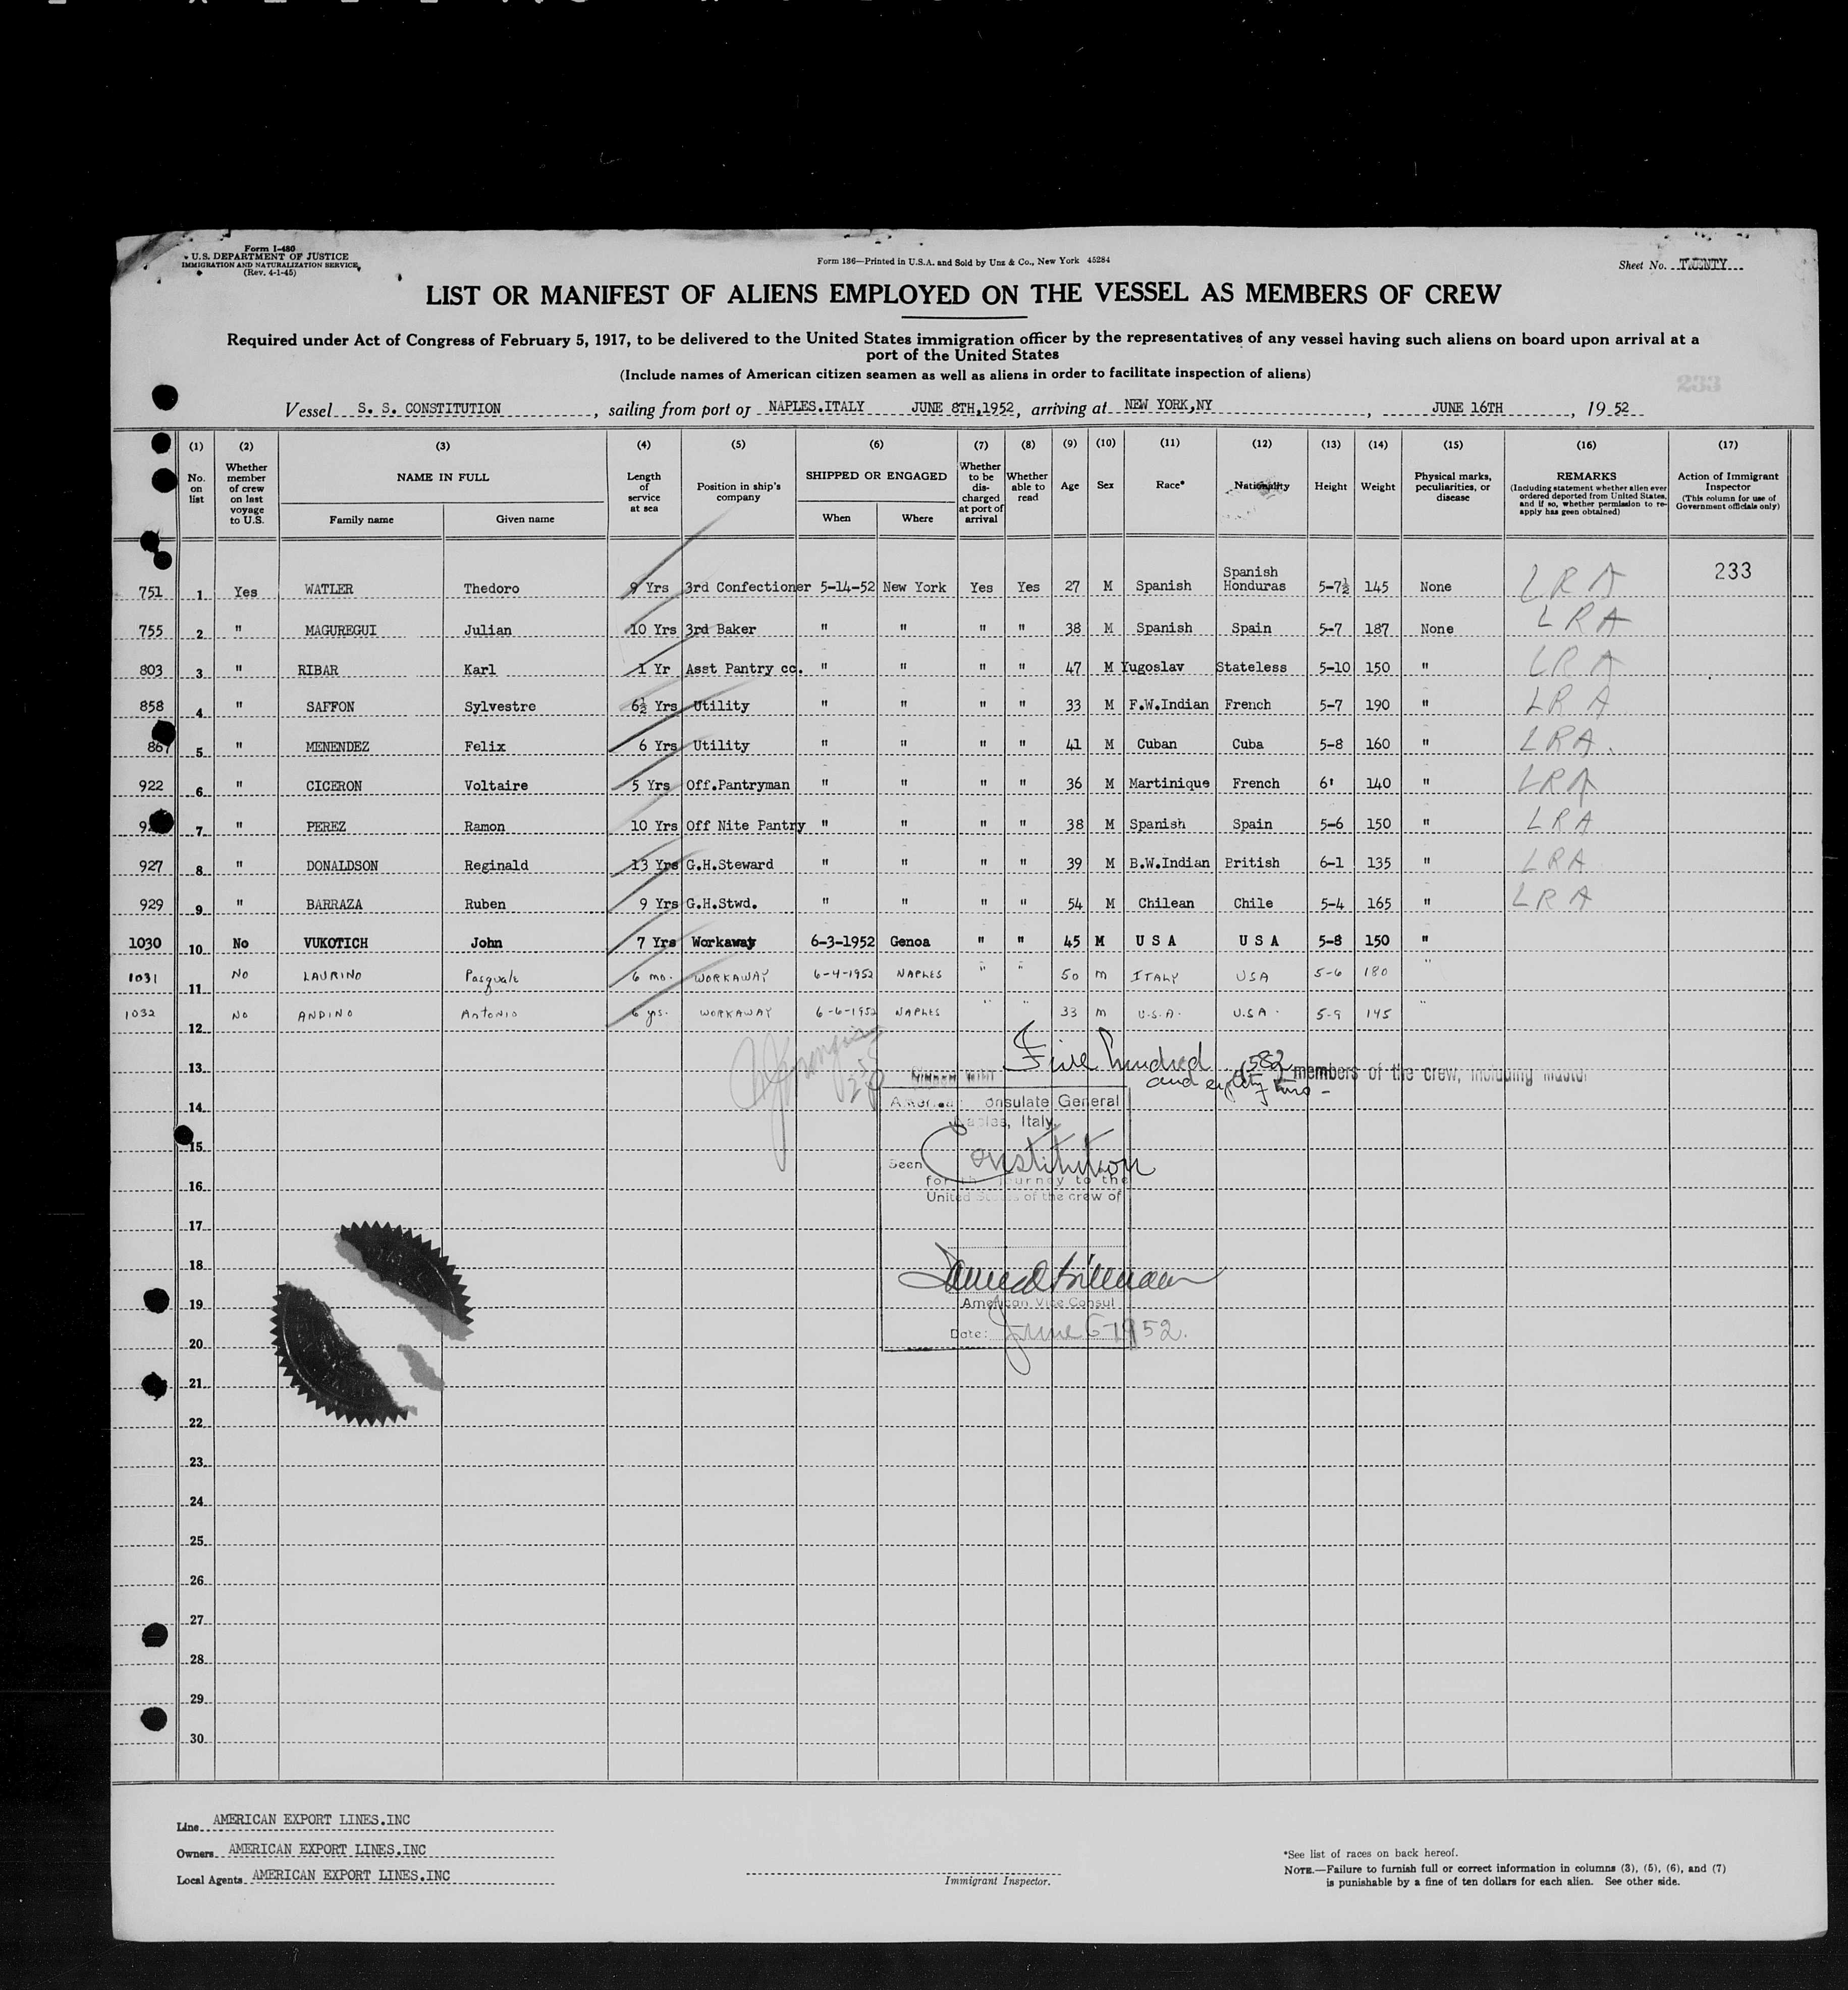 Form I-480
U.S. DEPARTMENT OF JUSTICE
IMMIGRATION AND NATURALIZATION SERVICE
(Rev. 4-1-45)
Form 136—Printed in U.S.A. and Sold by Unz & Co., New York 45284
Sheet No. TWENTY
LIST OR MANIFEST OF ALIENS EMPLOYED ON THE VESSEL AS MEMBERS OF CREW
Required under Act of Congress of February 5, 1917, to be delivered to the United States immigration officer by the representatives of any vessel having such aliens on board upon arrival at a
port of the United States
(Include names of American citizen seamen as well as aliens in order to facilitate inspection of aliens)
233
Vessel S. S. CONSTITUTION, sailing from port of NAPLES.ITALY JUNE 8TH,1952, arriving at NEW YORK,NY, JUNE 16TH, 1952
(1) (2) (3) (4) (5) (6) (7) (8) (9) (10) (11) (12) (13) (14) (15) (16) (17)
No. on list
Whether member of crew on last voyage to U.S.
NAME IN FULL
Family name
Given name
Length of service at sea
Position in ship's company
SHIPPED OR ENGAGED
When
Where
Whether to be discharged at port of arrival
Whether able to read
Age
Sex
Race*
Nationality
Height
Weight
Physical marks, peculiarities, or disease
REMARKS
(Including statement whether alien ever ordered deported from United States, and if so, whether permission to re-apply has geen obtained)
Action of Immigrant Inspector
(This column for use of Government officials only)
233
751 1 Yes WATLER Thedoro 9 Yrs 3rd Confectioner 5-14-52 New York Yes Yes 27 M Spanish Spanish Honduras 5-7½ 145 None LRA
755 2 " MAGUREGUI Julian 10 Yrs 3rd Baker " " " " 38 M Spanish Spain 5-7 187 None LRA
803 3 " RIBAR Karl 1 Yr Asst Pantry cc. " " " " 47 M Yugoslav Stateless 5-10 150 " LRA
858 4 " SAFFON Sylvestre 6½ Yrs Utility " " " " 33 M F.W.Indian French 5-7 190 " LRA
867 5 " MENENDEZ Felix 6 Yrs Utility " " " " 41 M Cuban Cuba 5-8 160 " LRA.
922 6 " CICERON Voltaire 5 Yrs Off.Pantryman " " " " 36 M Martinique French 6' 140 " LRA
7 " PEREZ Ramon 10 Yrs Off Nite Pantry " " " " 38 M Spanish Spain 5-6 150 " LRA
927 8 " DONALDSON Reginald 13 Yrs G.H.Steward " " " " 39 M B.W.Indian British 6-1 135 " LRA
929 9 " BARRAZA Ruben 9 Yrs G.H.Stwd. " " " " 54 M Chilean Chile 5-4 165 " LRA
1030 10 No VUKOTICH John 7 Yrs Workaway 6-3-1952 Genoa " " 45 M U S A U S A 5-8 150 "
1031 11 NO LAURINO Pasquale 6 mo. WORKAWAY 6-4-1952 NAPLES " " 50 M ITALY USA 5-6 180 "
1032 12 NO ANDINO Antonio 6 yrs. WORKAWAY 6-6-1952 NAPLES " " 33 M U.S.A. U.S.A. 5-9 145 "
13 Five hundred (582 members of the crew, including Master
and eighty two -
14
American Consulate General
Naples, Italy
15
Seen Constitution
16
for the journey to the
United States of the crew of
17
18
19
American Vice Consul
20
Date: June 6-1952.
21
22
23
24
25
26
27
28
29
30
Line AMERICAN EXPORT LINES.INC
Owners AMERICAN EXPORT LINES.INC
Local Agents AMERICAN EXPORT LINES.INC
Immigrant Inspector.
*See list of races on back hereof.
NOTE.—Failure to furnish full or correct information in columns (3), (5), (6), and (7)
is punishable by a fine of ten dollars for each alien. See other side.